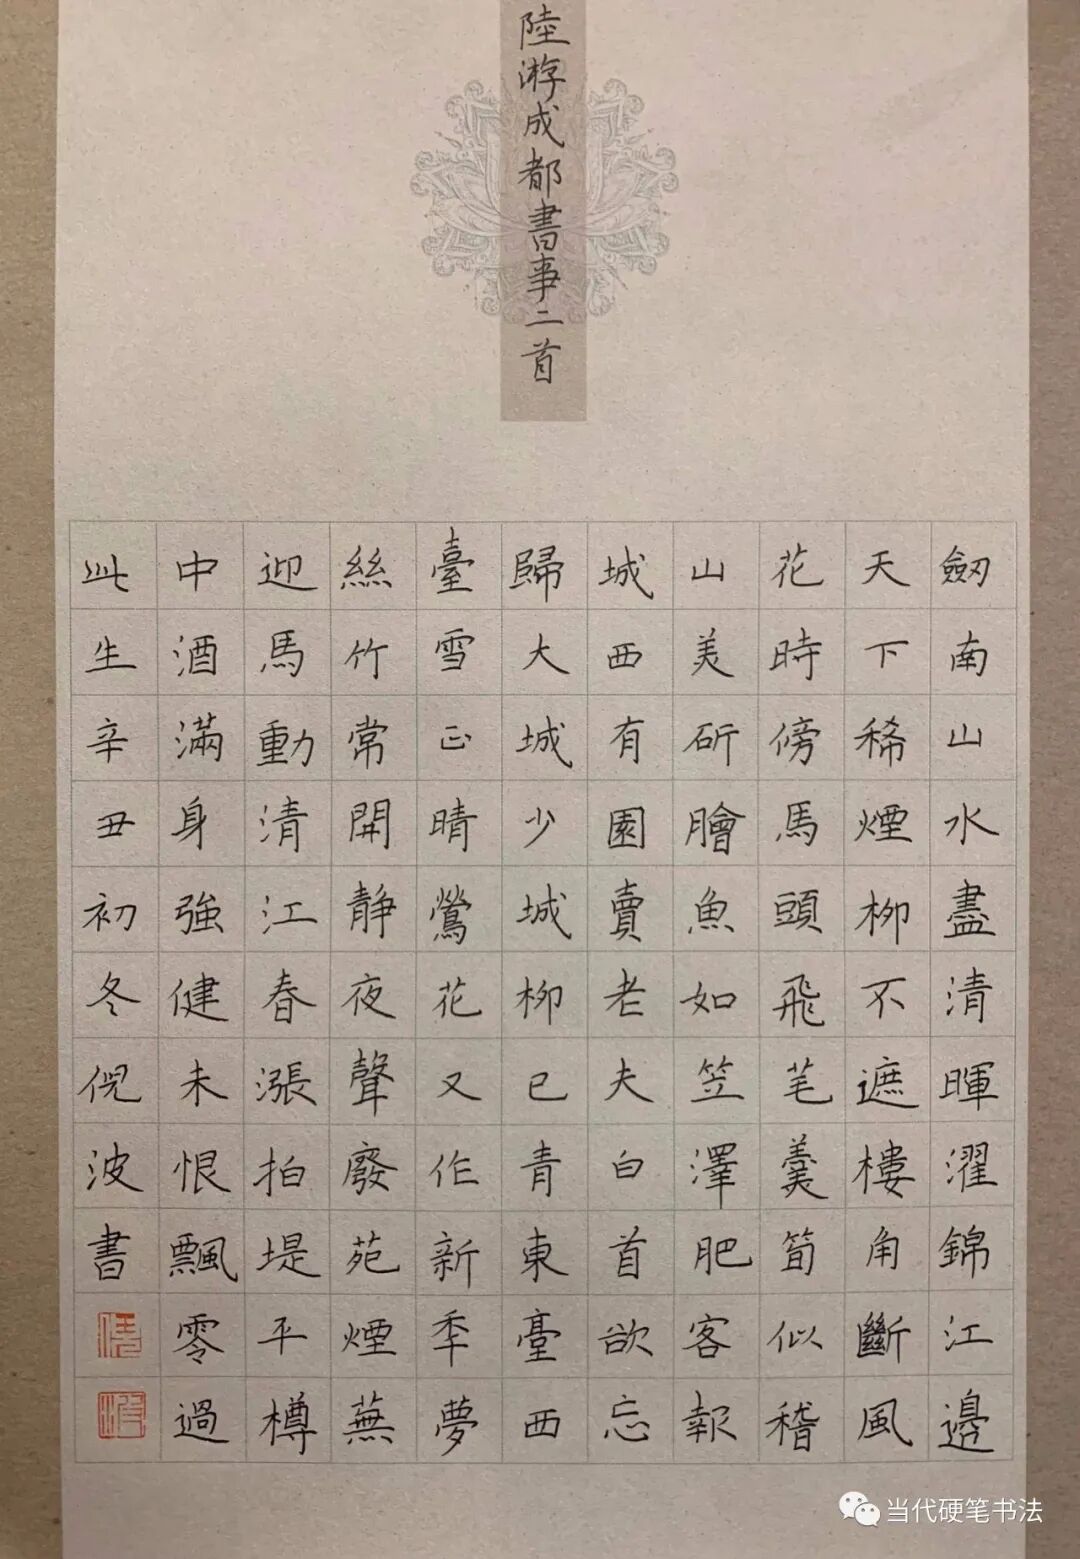 陸游成都書事二首
劔南山水盡清暉濯錦江邊
天下稀煙柳不遮樓角斷風
花時傍馬頭飛芼羹筍似稽
山美斫膾魚如笠澤肥客報
城西有園賣老夫白首欲忘
歸大城少城柳已青東臺西
臺雪正晴鶯花又作新年夢
絲竹常開静夜聲廢苑煙蕪
迎馬動清江春漲拍堤平樽
中酒滿身強健未恨飄零過
此生辛丑初冬倪波書
当代硬笔书法